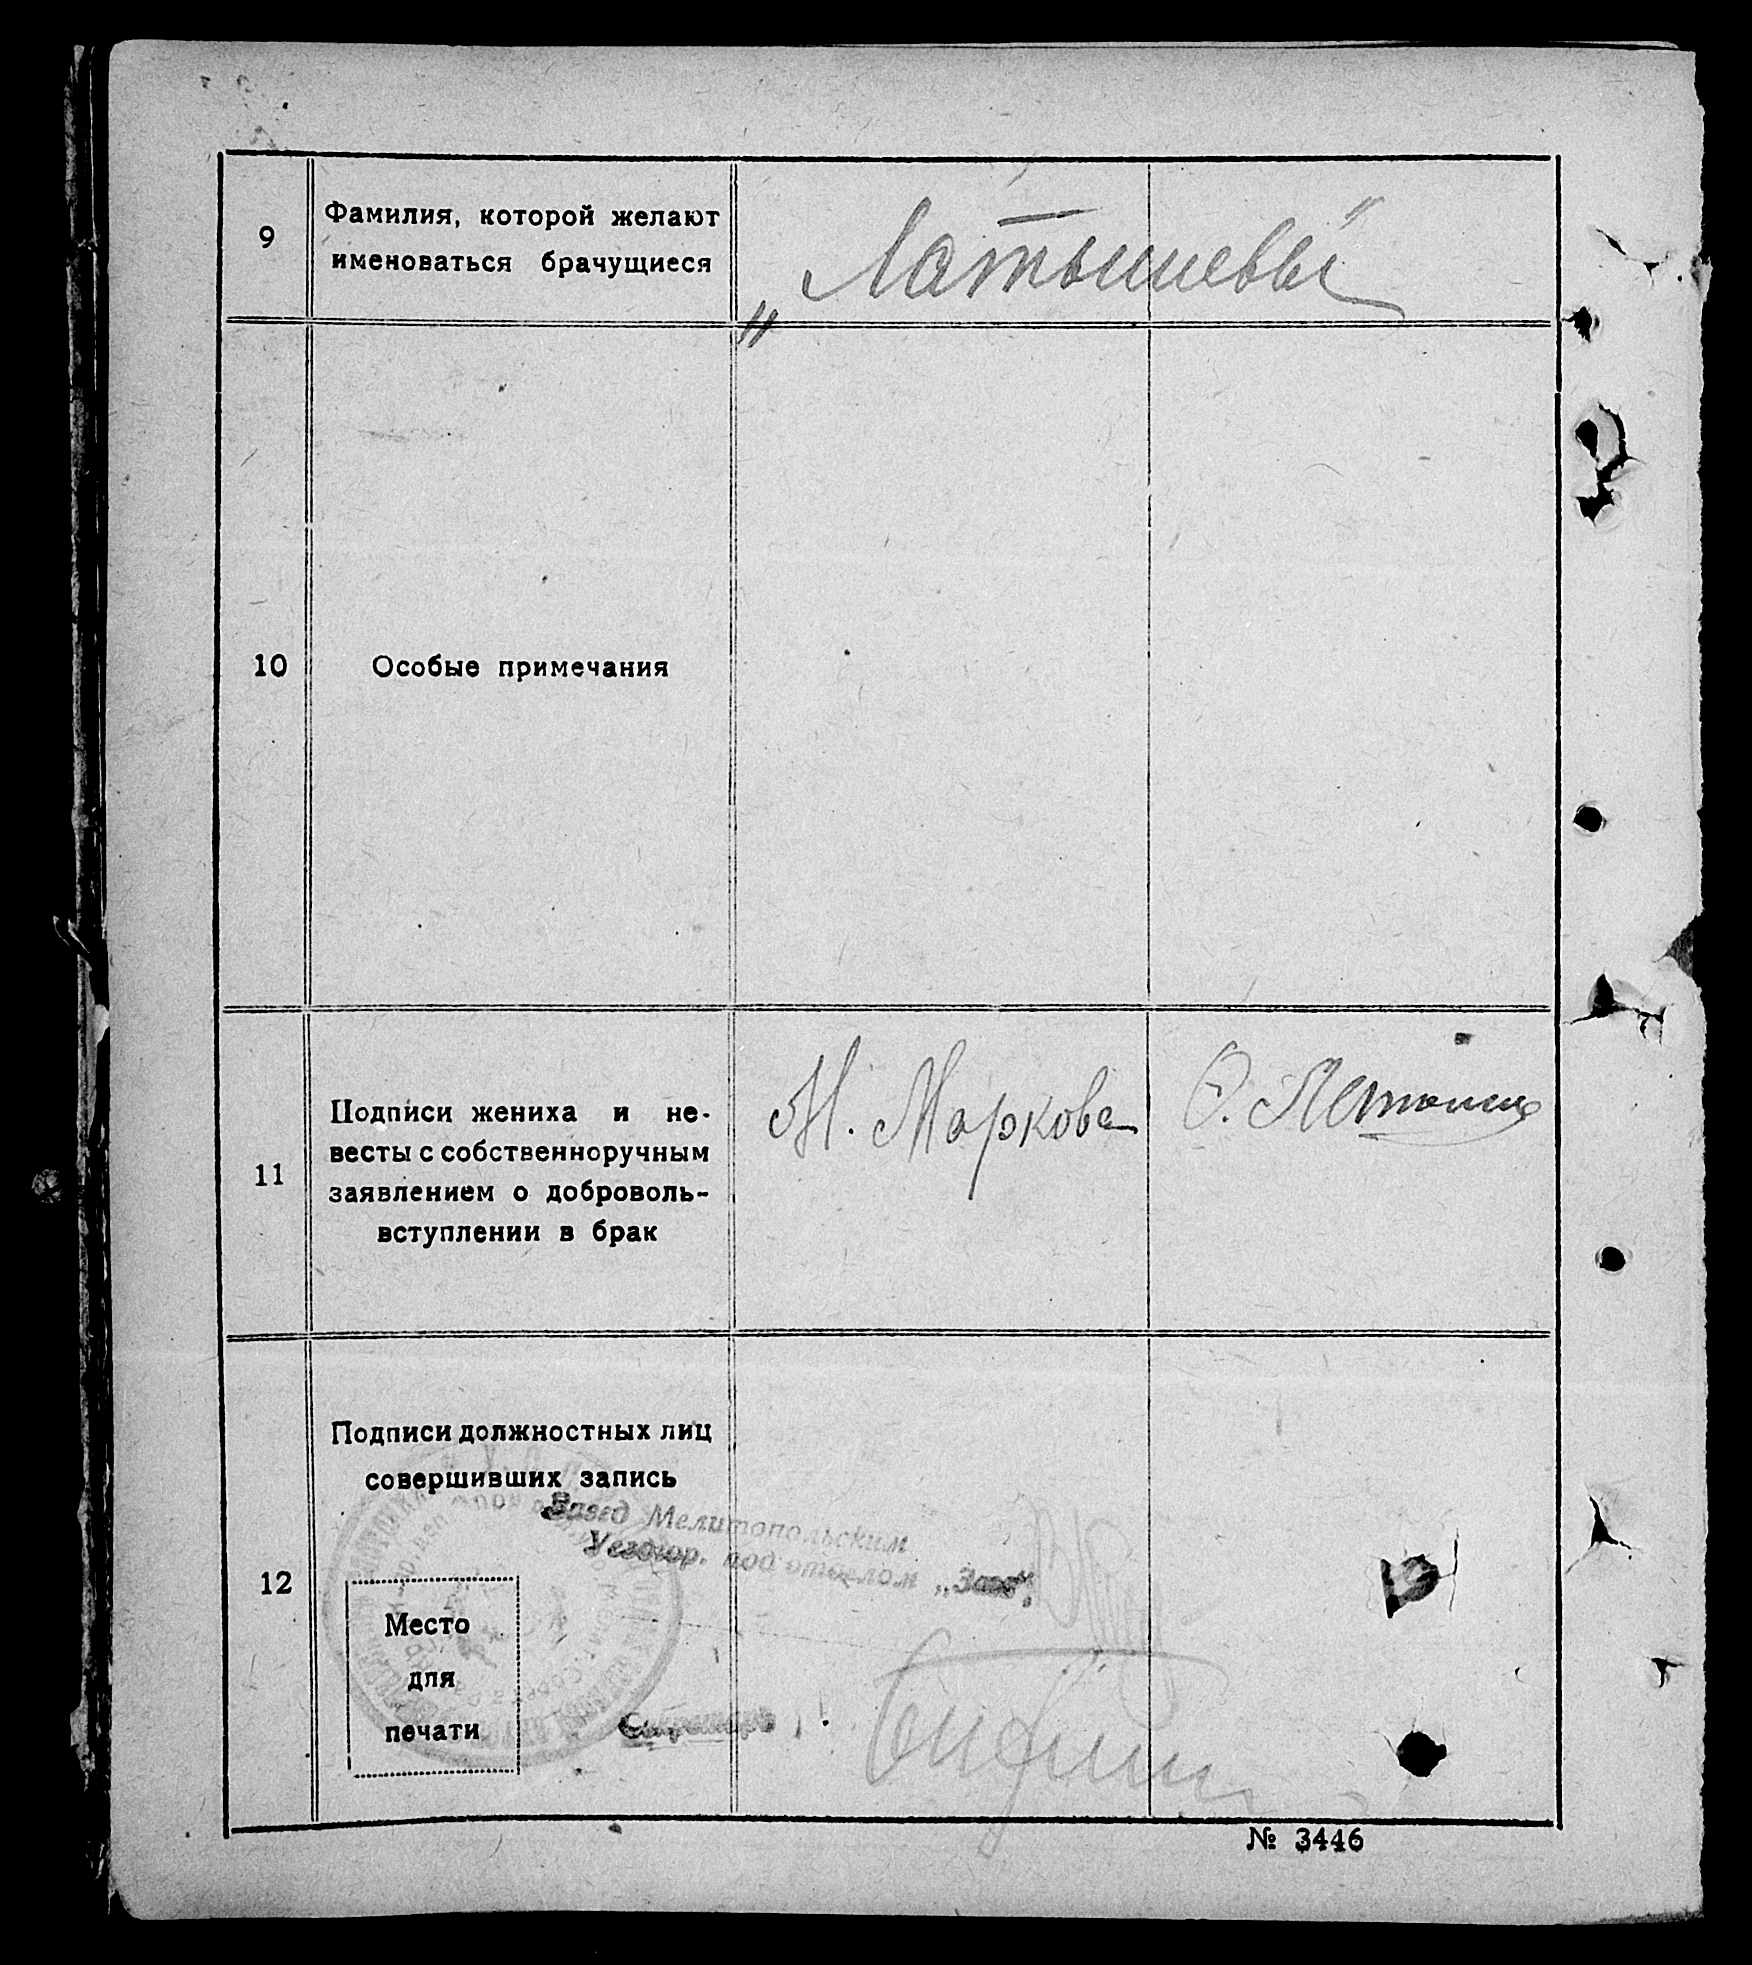 9
Фамилия, которой желают
именоваться брачущиеся
„Латышевы“
10
Особые примечания
11
Подписи жениха и не-
весты с собственноручным
заявлением о доброволь-
вступлении в брак
М. Маркова
12
Подписи должностных лиц
совершивших запись
Завед Мелитопольским
под отделом „Загс“.
Место
для
печати
Секретарь
№ 3446